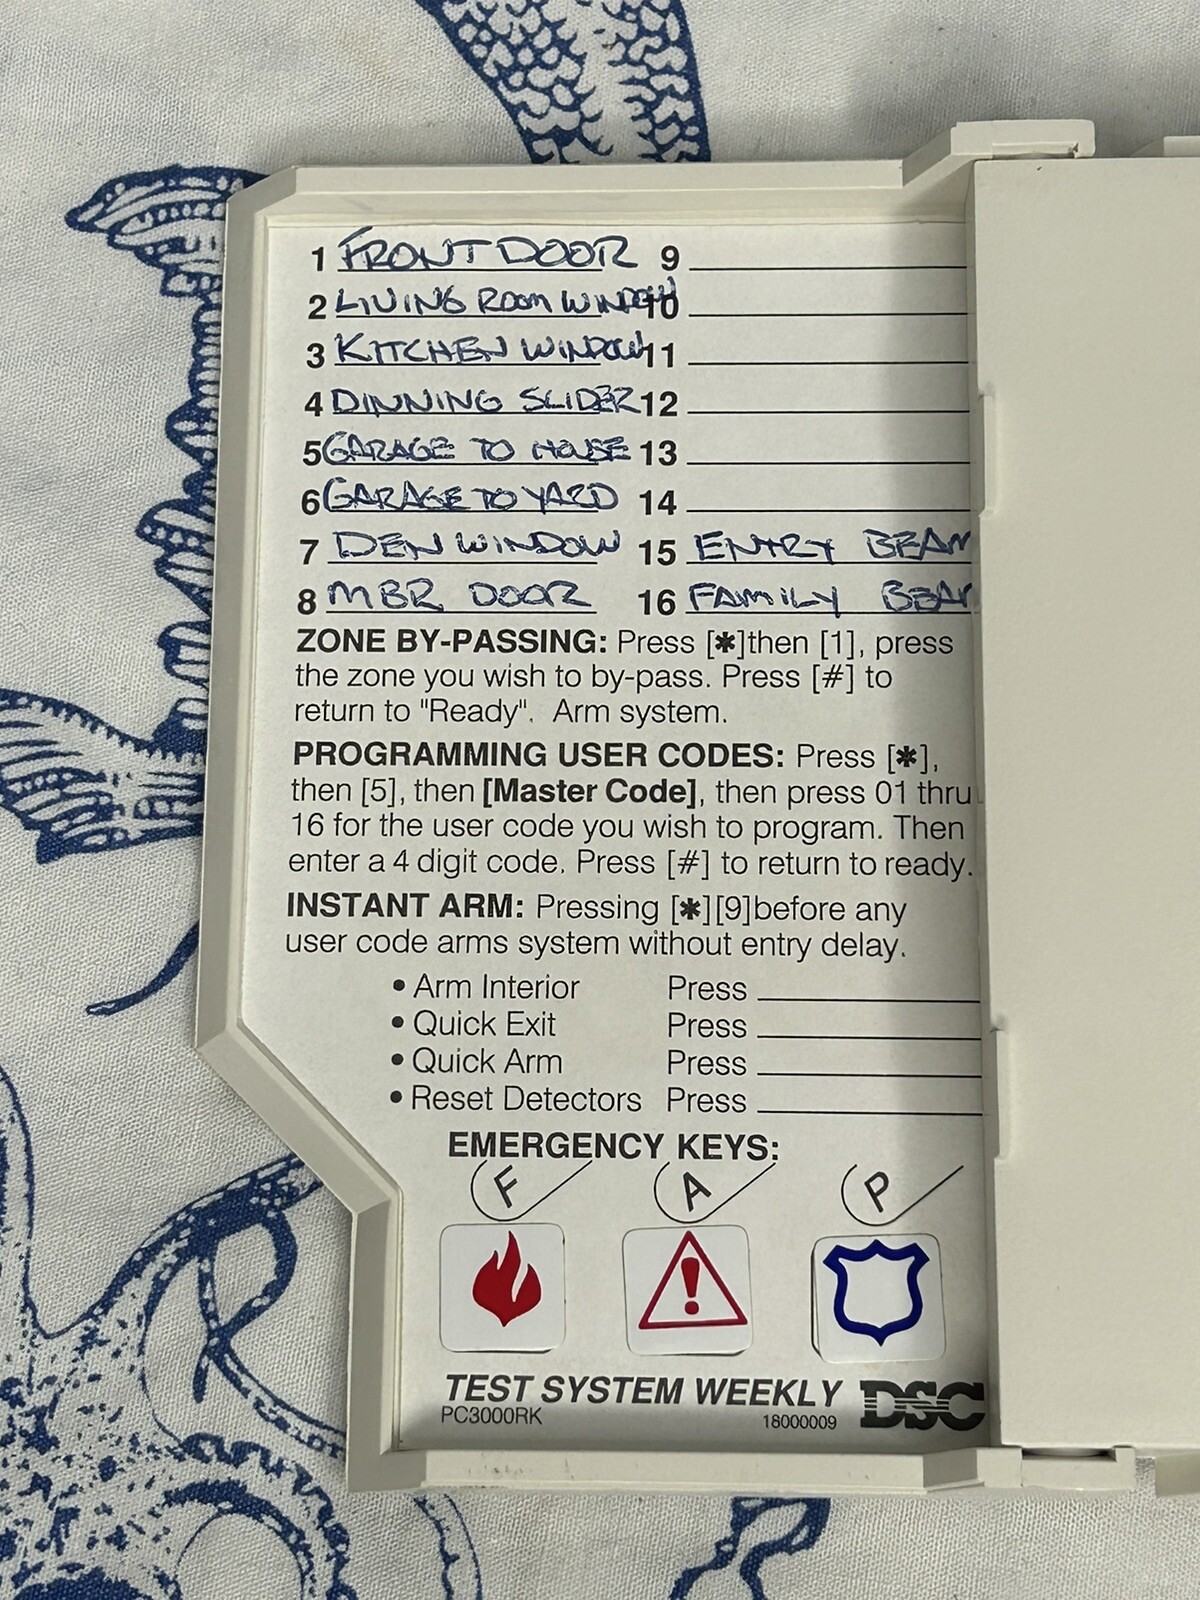 1 FRONT DOOR 9
2 LIVING ROOM WINDOW 10
3 KITCHEN WINDOW 11
4 DINNING SLIDER 12
5 GARAGE TO HOUSE 13
6 GARAGE TO YARD 14
7 DEN WINDOW 15 ENTRY BEAM
8 MBR DOOR 16 FAMILY BEAM
ZONE BY-PASSING: Press [✱]then [1], press
the zone you wish to by-pass. Press [#] to
return to "Ready". Arm system.
PROGRAMMING USER CODES: Press [✱],
then [5], then [Master Code], then press 01 thru
16 for the user code you wish to program. Then
enter a 4 digit code. Press [#] to return to ready.
INSTANT ARM: Pressing [✱][9]before any
user code arms system without entry delay.
• Arm Interior Press
• Quick Exit Press
• Quick Arm Press
• Reset Detectors Press
EMERGENCY KEYS:
F A P
!
TEST SYSTEM WEEKLY DSC
PC3000RK 18000009